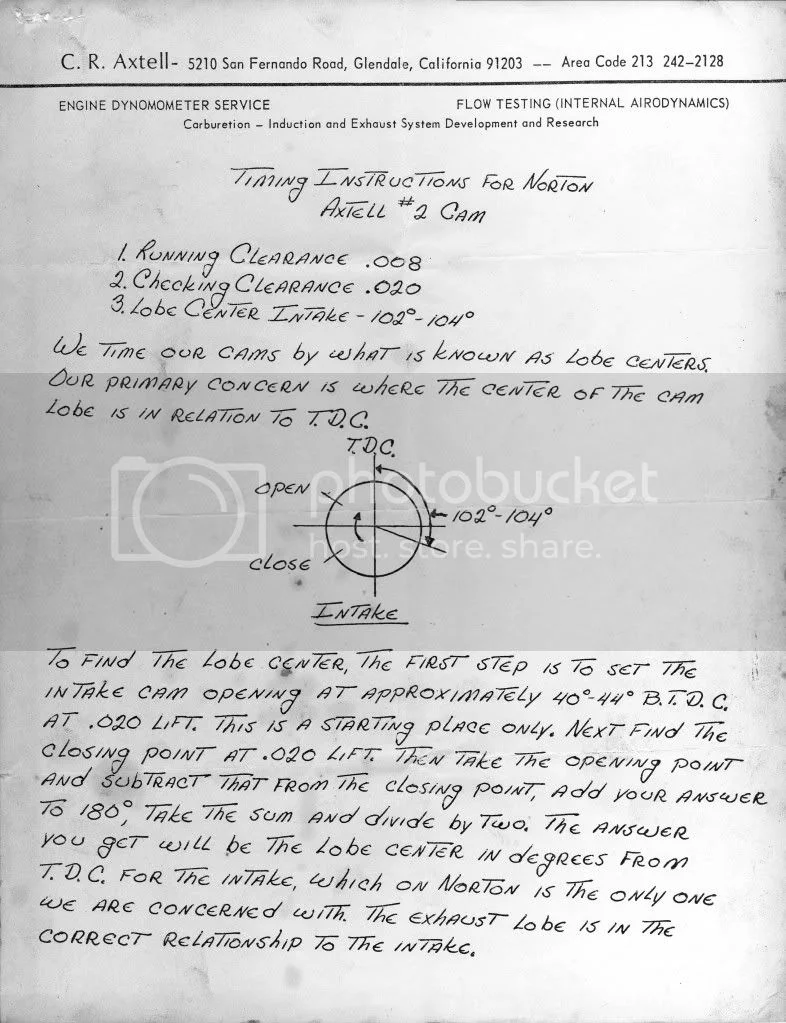 C. R. Axtell- 5210 San Fernando Road, Glendale, California 91203 -- Area Code 213 242-2128
ENGINE DYNOMOMETER SERVICE FLOW TESTING (INTERNAL AIRODYNAMICS)
Carburetion - Induction and Exhaust System Development and Research
TIMING INSTRUCTIONS FOR NORTON
AXTELL #2 CAM
1. RUNNING CLEARANCE .008
2. CHECKING CLEARANCE .020
3. LOBE CENTER INTAKE - 102°-104°
WE TIME OUR CAMS BY WHAT IS KNOWN AS LOBE CENTERS.
OUR PRIMARY CONCERN IS WHERE THE CENTER OF THE CAM
LOBE IS IN RELATION TO T.D.C.
T.D.C.
OPEN
102°-104°
CLOSE
INTAKE
photobucket
host. store. share.
TO FIND THE LOBE CENTER, THE FIRST STEP IS TO SET THE
INTAKE CAM OPENING AT APPROXIMATELY 40°-44° B.T.D.C.
AT .020 LIFT. THIS IS A STARTING PLACE ONLY. NEXT FIND THE
CLOSING POINT AT .020 LIFT. THEN TAKE THE OPENING POINT
AND SUBTRACT THAT FROM THE CLOSING POINT, ADD YOUR ANSWER
TO 180°, TAKE THE SUM AND DIVIDE BY TWO. THE ANSWER
YOU GET WILL BE THE LOBE CENTER IN DEGREES FROM
T.D.C. FOR THE INTAKE, WHICH ON NORTON IS THE ONLY ONE
WE ARE CONCERNED WITH. THE EXHAUST LOBE IS IN THE
CORRECT RELATIONSHIP TO THE INTAKE.